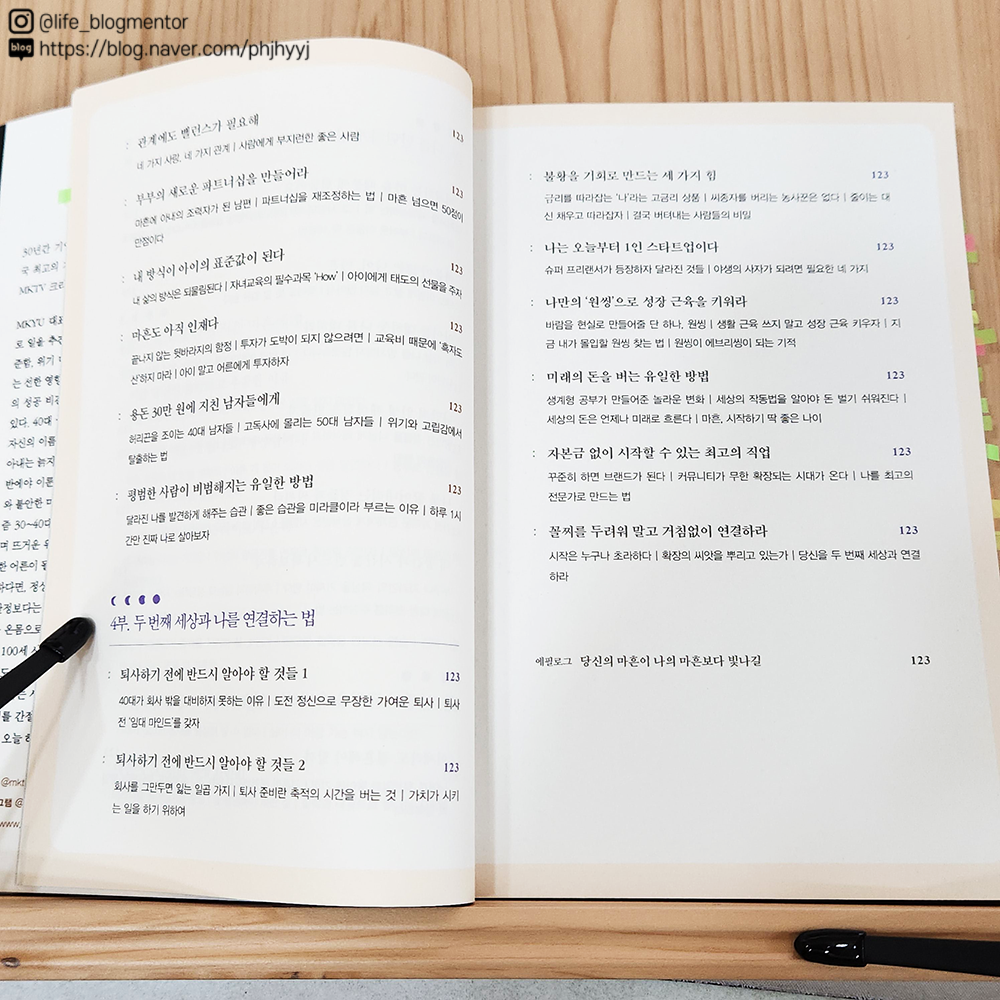 @life_blogmentor
blog https://blog.naver.com/phjhyyj
30년간 기
국 최고의
MKTV 크리
MKYU 대표
로 일을 추진
준함, 위기
는 선한 영향
의 성공 비
있다. 40대
자신의 이름
아내는 늙지
반에야 이룬
와 불안한 마
준 30~40대
며 뜨거운 위
한 어른이 될
하다면, 정상
안정보다는
온몸으로
100세 시
를 간절
오늘 하
@mkt
그램 @
www.
: 관계에도 밸런스가 필요해 123
네 가지 사랑, 네 가지 관계 | 사람에게 부지런한 좋은 사람
: 부부의 새로운 파트너십을 만들어라 123
마흔에 아내의 조력자가 된 남편 | 파트너십을 재조정하는 법 | 마흔 넘으면 50점이
만점이다
: 내 방식이 아이의 표준값이 된다 123
내 삶의 방식은 되물림된다 | 자녀교육의 필수과목 ‘How’ | 아이에게 태도의 선물을 주자
: 마흔도 아직 인재다 123
끝나지 않는 뒷바라지의 함정 | 투자가 도박이 되지 않으려면 | 교육비 때문에 ‘흑자도
산’하지 마라 | 아이 말고 어른에게 투자하자
: 용돈 30만 원에 지친 남자들에게 123
허리끈을 조이는 40대 남자들 | 고독사에 몰리는 50대 남자들 | 위기와 고립감에서
탈출하는 법
: 평범한 사람이 비범해지는 유일한 방법 123
달라진 나를 발견하게 해주는 습관 | 좋은 습관을 미라클이라 부르는 이유 | 하루 1시
간만 진짜 나로 살아보자
4부. 두 번째 세상과 나를 연결하는 법
: 퇴사하기 전에 반드시 알아야 할 것들 1 123
40대가 회사 밖을 대비하지 못하는 이유 | 도전 정신으로 무장한 가여운 퇴사 | 퇴사
전 ‘임대 마인드’를 갖자
: 퇴사하기 전에 반드시 알아야 할 것들 2 123
회사를 그만두면 잃는 일곱 가지 | 퇴사 준비란 축적의 시간을 버는 것 | 가치가 시키
는 일을 하기 위하여
: 불황을 기회로 만드는 세 가지 힘 123
금리를 따라잡는 ‘나’라는 고금리 상품 | 씨종자를 버리는 농사꾼은 없다 | 줄이는 대
신 채우고 따라잡자 | 결국 버텨내는 사람들의 비밀
: 나는 오늘부터 1인 스타트업이다 123
슈퍼 프리랜서가 등장하자 달라진 것들 | 야생의 사자가 되려면 필요한 네 가지
: 나만의 ‘원씽’으로 성장 근육을 키워라 123
바람을 현실로 만들어줄 단 하나, 원씽 | 생활 근육 쓰지 말고 성장 근육 키우자 | 지
금 내가 몰입할 원씽 찾는 법 | 원씽이 에브리씽이 되는 기적
: 미래의 돈을 버는 유일한 방법 123
생계형 공부가 만들어준 놀라운 변화 | 세상의 작동법을 알아야 돈 벌기 쉬워진다 |
세상의 돈은 언제나 미래로 흐른다 | 마흔, 시작하기 딱 좋은 나이
: 자본금 없이 시작할 수 있는 최고의 직업 123
꾸준히 하면 브랜드가 된다 | 커뮤니티가 무한 확장되는 시대가 온다 | 나를 최고의
전문가로 만드는 법
: 꼴찌를 두려워 말고 거침없이 연결하라 123
시작은 누구나 초라하다 | 확장의 씨앗을 뿌리고 있는가 | 당신을 두 번째 세상과 연결
하라
에필로그 당신의 마흔이 나의 마흔보다 빛나길 123